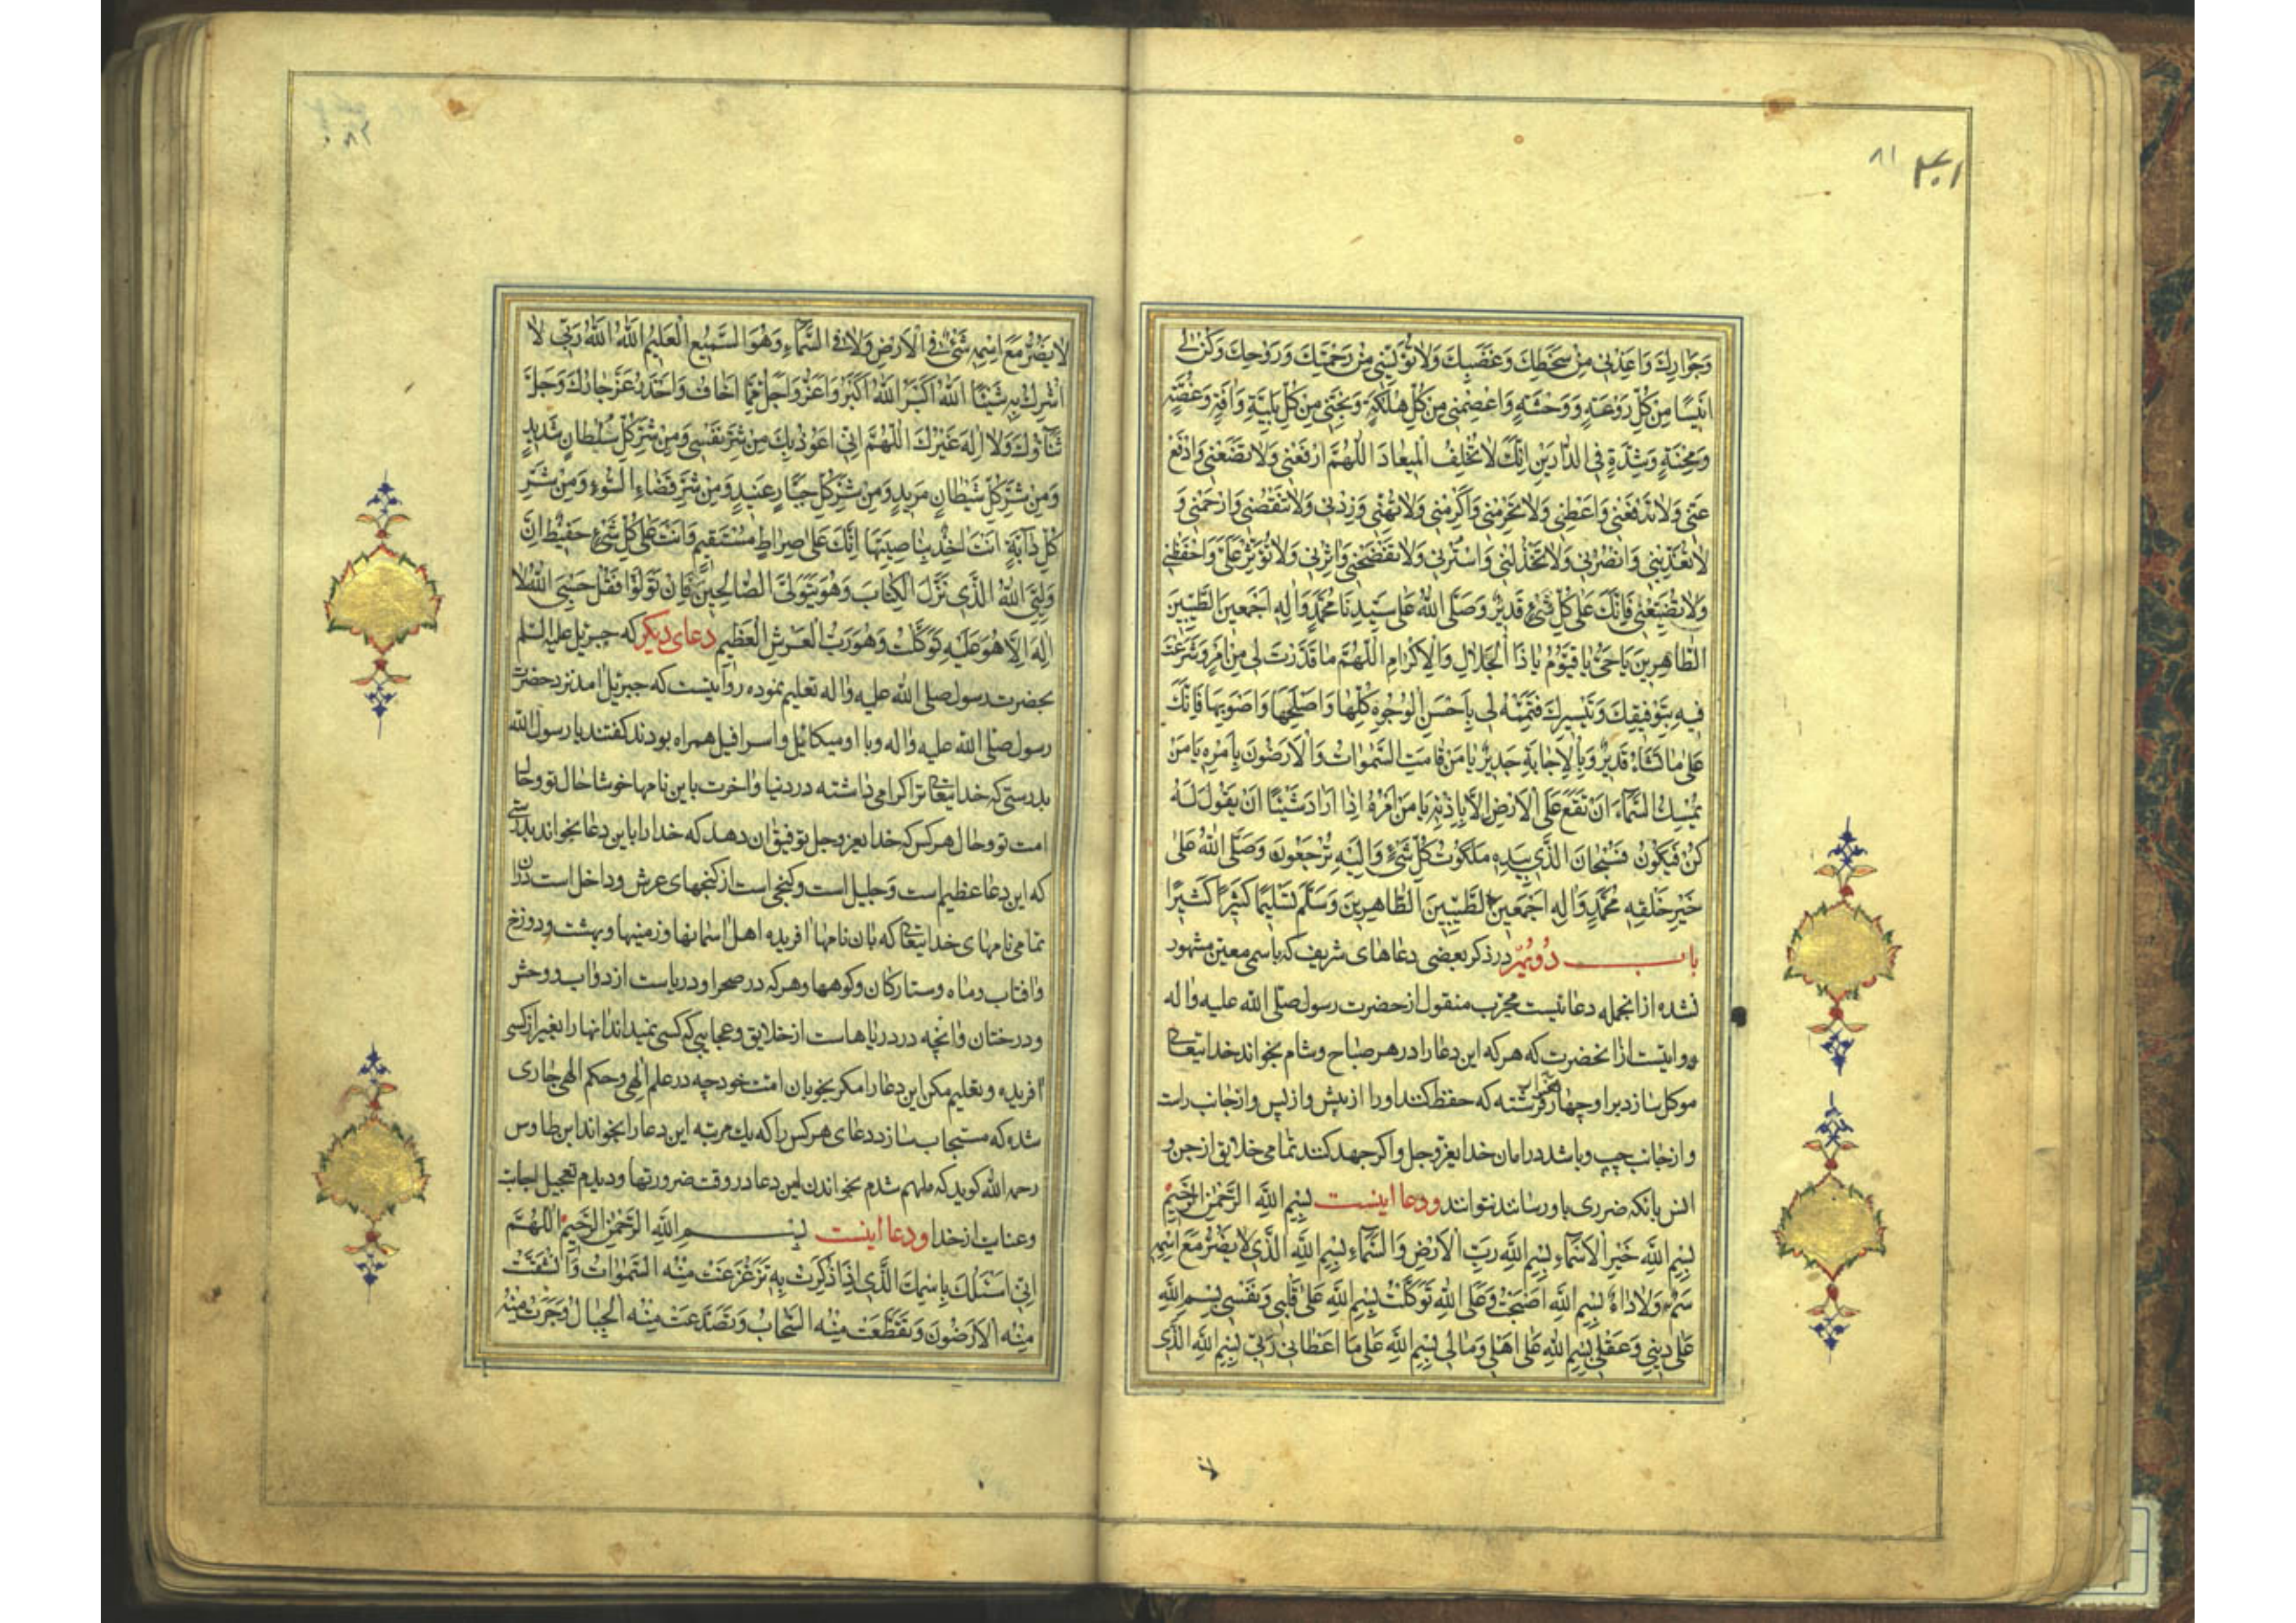 ۸۱
وَجَوارِكَ وَاَعِذْنی مِنْ سَخَطِكَ وَغَضَبِكَ وَلاتُؤْیِسْنی مِنْ رَحْمَتِكَ وَرَوْحِكَ وَكُنْ لی
اَنیسًا مِنْ كُلِّ رَوْعَةٍ وَوَحْشَةٍ وَاعْصِمْنی مِنْ كُلِّ هَلَكَةٍ وَنَجِّنی مِنْ كُلِّ بَلِیَّةٍ وَافَةٍ وَغُصَّةٍ
وَمِحْنَةٍ وَشِدَّةٍ فِی الدّارَیْنِ اِنَّكَ لاتُخْلِفُ الْمیعادَ اَللّهُمَّ ارْفَعْنی وَلاتَضَعْنی وَادْفَعْ
عَنّی وَلاتَدْفَعْنی وَاَعْطِنی وَلاتَحْرِمْنی وَاَكْرِمْنی وَلاتُهِنّی وَزِدْنی وَلاتَنْقُصْنی وَارْحَمْنی وَ
لاتُعَذِّبْنی وَانْصُرْنی وَلاتَخْذُلْنی وَاسْتُرْنی وَلاتَفْضَحْنی وَاثِرْنی وَلاتُؤْثِرْ عَلَیَّ وَاحْفَظْنی
وَلاتُضَیِّعْنی فَاِنَّكَ عَلی كُلِّ شَیْءٍ قَدیرٌ وَصَلَّی اللهُ عَلی سَیِّدِنا مُحَمَّدٍ وَالِهِ اَجْمَعینَ الطَّیِّبینَ
الطّاهِرینَ یاحَیُّ یاقَیُّومُ یاذَا الْجَلالِ وَالْاِكْرامِ اَللّهُمَّ ماقَدَّرْتَ لی مِنْ اَمْرٍ وَشَرَعْتَ
فیهِ بِتَوْفیقِكَ وَتَیْسیرِكَ فَتَمِّمْهُ لی بِاَحْسَنِ الْوُجُوهِ كُلِّها وَاَصْلَحِها وَاَصْوَبِها فَاِنَّكَ
عَلی ماتَشاءُ قَدیرٌ وَبِالْاِجابَةِ جَدیرٌ یامَنْ قامَتِ السَّمواتُ وَالْاَرَضُونَ بِاَمْرِهِ یامَنْ
یُمْسِكُ السَّماءَ اَنْ تَقَعَ عَلَی الْاَرْضِ اِلاّ بِاِذْنِهِ یامَنْ اَمْرُهُ اِذا اَرادَ شَیْئًا اَنْ یَقُولَ لَهُ
كُنْ فَیَكُونُ فَسُبْحانَ الَّذی بِیَدِهِ مَلَكُوتُ كُلِّ شَیْءٍ وَاِلَیْهِ تُرْجَعُونَ وَصَلَّی اللهُ عَلی
خَیْرِ خَلْقِهِ مُحَمَّدٍ وَالِهِ اَجْمَعینَ الطَّیِّبینَ الطّاهِرینَ وَسَلَّمَ تَسْلیمًا كَثیرًا كَثیرًا
باب دُویُمْ در ذکر بعضی دعاهای شریف که باسمی معین مشهود
نشده ازانجمله دعائیست مجرّب منقول از حضرت رسول صلّی الله علیه واله
وروایتست ازانحضرت که هر که این دعا را در هر صباح وشام بخواند خدایتعالی
موکل سازد براو چهار فرشته که حفظ کنند او را از پیش واز پس واز جانب راست
واز جانب چپ وباشد در امان خدایعزّوجل واکر جهد کنند تمامی خلایق ازجن و
انس بانکه ضرری باو رسانند نتوانند ودعا اینست بِسْمِ اللهِ الرَّحْمنِ الرَّحیمِ
بِسْمِ اللهِ خَیْرِ الْاَسْماءِ بِسْمِ اللهِ رَبِّ الْاَرْضِ وَالسَّماءِ بِسْمِ اللهِ الَّذی لایَضُرُّ مَعَ اسْمِهِ
سَمٌّ وَلاداءٌ بِسْمِ اللهِ اَصْبَحْتُ وَعَلَی اللهِ تَوَكَّلْتُ بِسْمِ اللهِ عَلی قَلْبی وَنَفْسی بِسْمِ اللهِ
عَلی دینی وَعَقْلی بِسْمِ اللهِ عَلی اَهْلی وَمالی بِسْمِ اللهِ عَلی ما اَعْطانی رَبّی بِسْمِ اللهِ الَّذی
لا
لایَضُرُّ مَعَ اسْمِهِ شَیْءٌ فِی الْاَرْضِ وَلا فِی السَّماءِ وَهُوَ السَّمیعُ الْعَلیمُ اَللهُ اَللهُ رَبّی لا
اُشْرِكُ بِهِ شَیْئًا اَللهُ اَكْبَرُ اَللهُ اَكْبَرُ وَاَعَزُّ وَاَجَلُّ مِمّا اَخافُ وَاَحْذَرُ عَزَّ جارُكَ وَجَلَّ
ثَناؤُكَ وَلا اِلهَ غَیْرُكَ اَللّهُمَّ اِنّی اَعُوذُ بِكَ مِنْ شَرِّ نَفْسی وَمِنْ شَرِّ كُلِّ سُلْطانٍ شَدیدٍ
وَمِنْ شَرِّ كُلِّ شَیْطانٍ مَریدٍ وَمِنْ شَرِّ كُلِّ جَبّارٍ عَنیدٍ وَمِنْ شَرِّ قَضاءِ السُّوءِ وَمِنْ شَرِّ
كُلِّ دابَّةٍ اَنْتَ اخِذٌ بِناصِیَتِها اِنَّكَ عَلی صِراطٍ مُسْتَقیمٍ وَاَنْتَ عَلی كُلِّ شَیْءٍ حَفیظٌ اِنَّ
وَلِیِّیَ اللهُ الَّذی نَزَّلَ الْكِتابَ وَهُوَ یَتَوَلَّی الصّالِحینَ فَاِنْ تَوَلَّوْا فَقُلْ حَسْبِیَ اللهُ لا
اِلهَ اِلاّ هُوَ عَلَیْهِ تَوَكَّلْتُ وَهُوَ رَبُّ الْعَرْشِ الْعَظیمِ دعای دیکر که جبرئیل علیه السلم
بحضرت رسول صلی الله علیه واله تعلیم نموده روایتست که جبرئیل امد نزد حضرت
رسول صلی الله علیه واله وبا او میکائیل واسرافیل همراه بودند کفتند یا رسول الله
بدرستی که خدایتعالی ترا کرامی داشته در دنیا واخرت باین نامها خوشا حال تو وحال
امت تو وحال هر کس که خدایعزوجل توفیق ان دهد که خدا را باین دعا بخواند بدرستی
که این دعا عظیم است وجلیل است وکنجی است از کنجهای عرش وداخل است دران
تمامی نامهای خدایتعالی که بان نامها افریده اهل اسمانها وزمینها وبهشت ودوزخ
وافتاب وماه وستارکان وکوهها وهر که در صحرا ودریاست از دواب ووحش
ودرختان وانچه در دریاهاست از خلایق وعجایبی که کسی نمیداند انها را بغیر از کسی
افریده وتعلیم مکن این دعا را مکر بخوبان امت خود چه در علم الهی وحکم الهی جاری
شده که مستجاب سازد دعای هر کس را که یك مرتبه این دعا را بخواند ابن طاوس
رحمه الله کوید که ملهم شدم بخواندن این دعا در وقت ضرورتها ودیدم تعجیل اجابت
وعنایت از خدا ودعا اینست بِسْمِ اللهِ الرَّحْمنِ الرَّحیمِ اَللّهُمَّ
اِنّی اَسْئَلُكَ بِاسْمِكَ الَّذی اِذا ذُكِرْتَ بِهِ تَزَعْزَعَتْ مِنْهُ السَّمواتُ وَانْشَقَّتْ
مِنْهُ الْاَرَضُونَ وَتَقَطَّعَتْ مِنْهُ السَّحابُ وَتَصَدَّعَتْ مِنْهُ الْجِبالُ وَجَرَتْ مِنْهُ